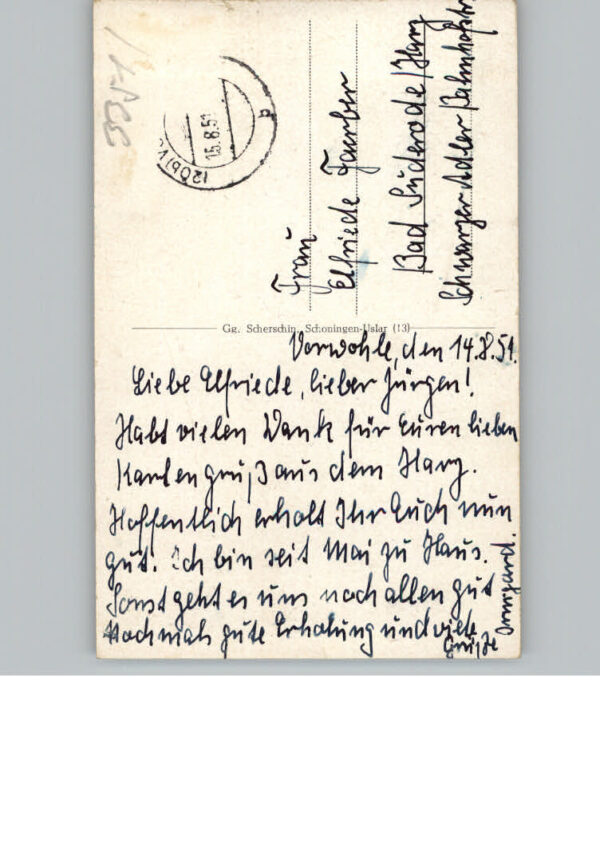 3351/
(20b) V
15.8.51
b
Frau
Elfriede Faerber
Bad Suderode/Harz
Schwarzer Adler Bahnhofstr
Gg. Scherschin, Schoningen-Uslar (13)
Vorwohle, den 14.8.51.
Liebe Elfriede, lieber Jürgen!
Habt vielen Dank für Euren lieben
Kartengruß aus dem Harz.
Hoffentlich erholt Ihr Euch nun
gut. Ich bin seit Mai zu Haus.
Sonst geht es uns noch allen gut
Nochmals gute Erholung und viele
Grüße Irmgard.